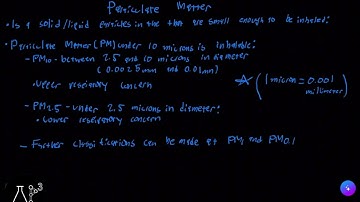 Particulate Matter
• Is a solid/liquid in the that are small enough to be inhaled:
• Particulate Matter (PM) under 10 microns is inhalable:
– PM10 - between 2.5 and 10 microns in diameter
(0.0025mm and 0.01mm)
• Upper respiratory concern
(1 micron = 0.001
millimeter)
– PM2.5 - under 2.5 microns in diameter:
• Lower respiratory concern
– Further can be made at PM1 and PM0.1